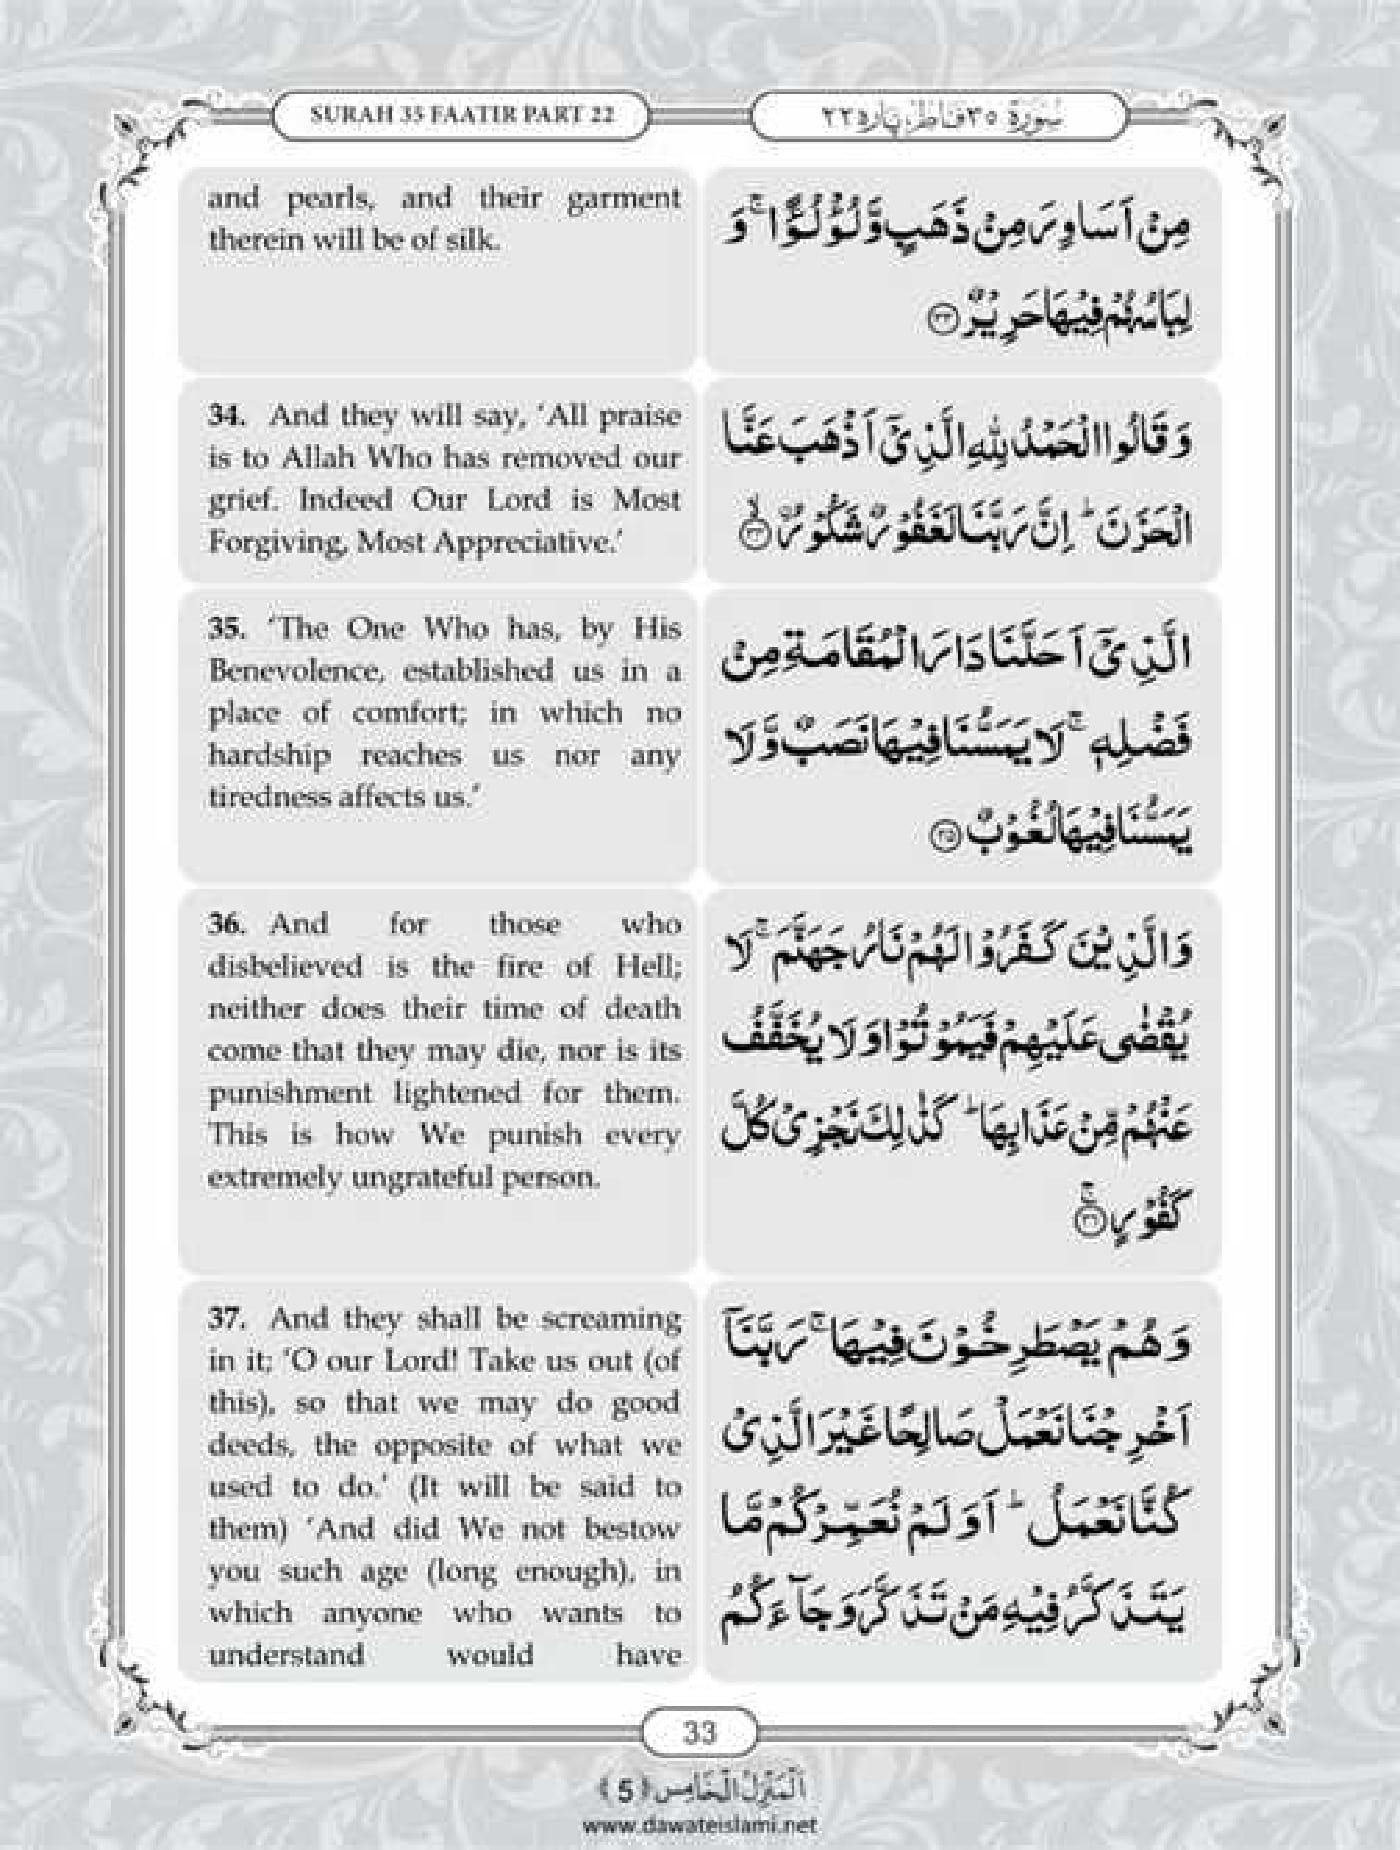 SURAH 35 FAATIR PART 22
سُوْرَةُ ٣٥ فَاطِرٍ، پاره ٢٢
and pearls, and their garment
therein will be of silk.
مِنْ اَسَاوِرَ مِنْ ذَهَبٍ وَّلُؤْلُؤًا ۚ وَ
لِبَاسُهُمْ فِيْهَا حَرِيْرٌ ﴿٣٣﴾
34. And they will say, ‘All praise
is to Allah Who has removed our
grief. Indeed Our Lord is Most
Forgiving, Most Appreciative.’
وَ قَالُوا الْحَمْدُ لِلّٰهِ الَّذِيْۤ اَذْهَبَ عَنَّا
الْحَزَنَ ؕ اِنَّ رَبَّنَا لَغَفُوْرٌ شَكُوْرُۨ ﴿٣٤﴾ۙ
35. ‘The One Who has, by His
Benevolence, established us in a
place of comfort; in which no
hardship reaches us nor any
tiredness affects us.’
الَّذِيْۤ اَحَلَّنَا دَارَ الْمُقَامَةِ مِنْ
فَضْلِهٖ ۚ لَا يَمَسُّنَا فِيْهَا نَصَبٌ وَّ لَا
يَمَسُّنَا فِيْهَا لُغُوْبٌ ﴿٣٥﴾
36. And for those who
disbelieved is the fire of Hell;
neither does their time of death
come that they may die, nor is its
punishment lightened for them.
This is how We punish every
extremely ungrateful person.
وَ الَّذِيْنَ كَفَرُوْا لَهُمْ نَارُ جَهَنَّمَ ۚ لَا
يُقْضٰى عَلَيْهِمْ فَيَمُوْتُوْا وَ لَا يُخَفَّفُ
عَنْهُمْ مِّنْ عَذَابِهَا ؕ كَذٰلِكَ نَجْزِيْ كُلَّ
كَفُوْرٍ ﴿٣٦﴾ۚ
37. And they shall be screaming
in it; ‘O our Lord! Take us out (of
this), so that we may do good
deeds, the opposite of what we
used to do.’ (It will be said to
them) ‘And did We not bestow
you such age (long enough), in
which anyone who wants to
understand would have
وَ هُمْ يَصْطَرِخُوْنَ فِيْهَا ۚ رَبَّنَاۤ
اَخْرِجْنَا نَعْمَلْ صَالِحًا غَيْرَ الَّذِيْ
كُنَّا نَعْمَلُ ؕ اَوَ لَمْ نُعَمِّرْكُمْ مَّا
يَتَذَكَّرُ فِيْهِ مَنْ تَذَكَّرَ وَ جَآءَكُمُ
33
اَلْمَنْزِلُ الْخَامِسِ ﴿5﴾
www.dawateislami.net